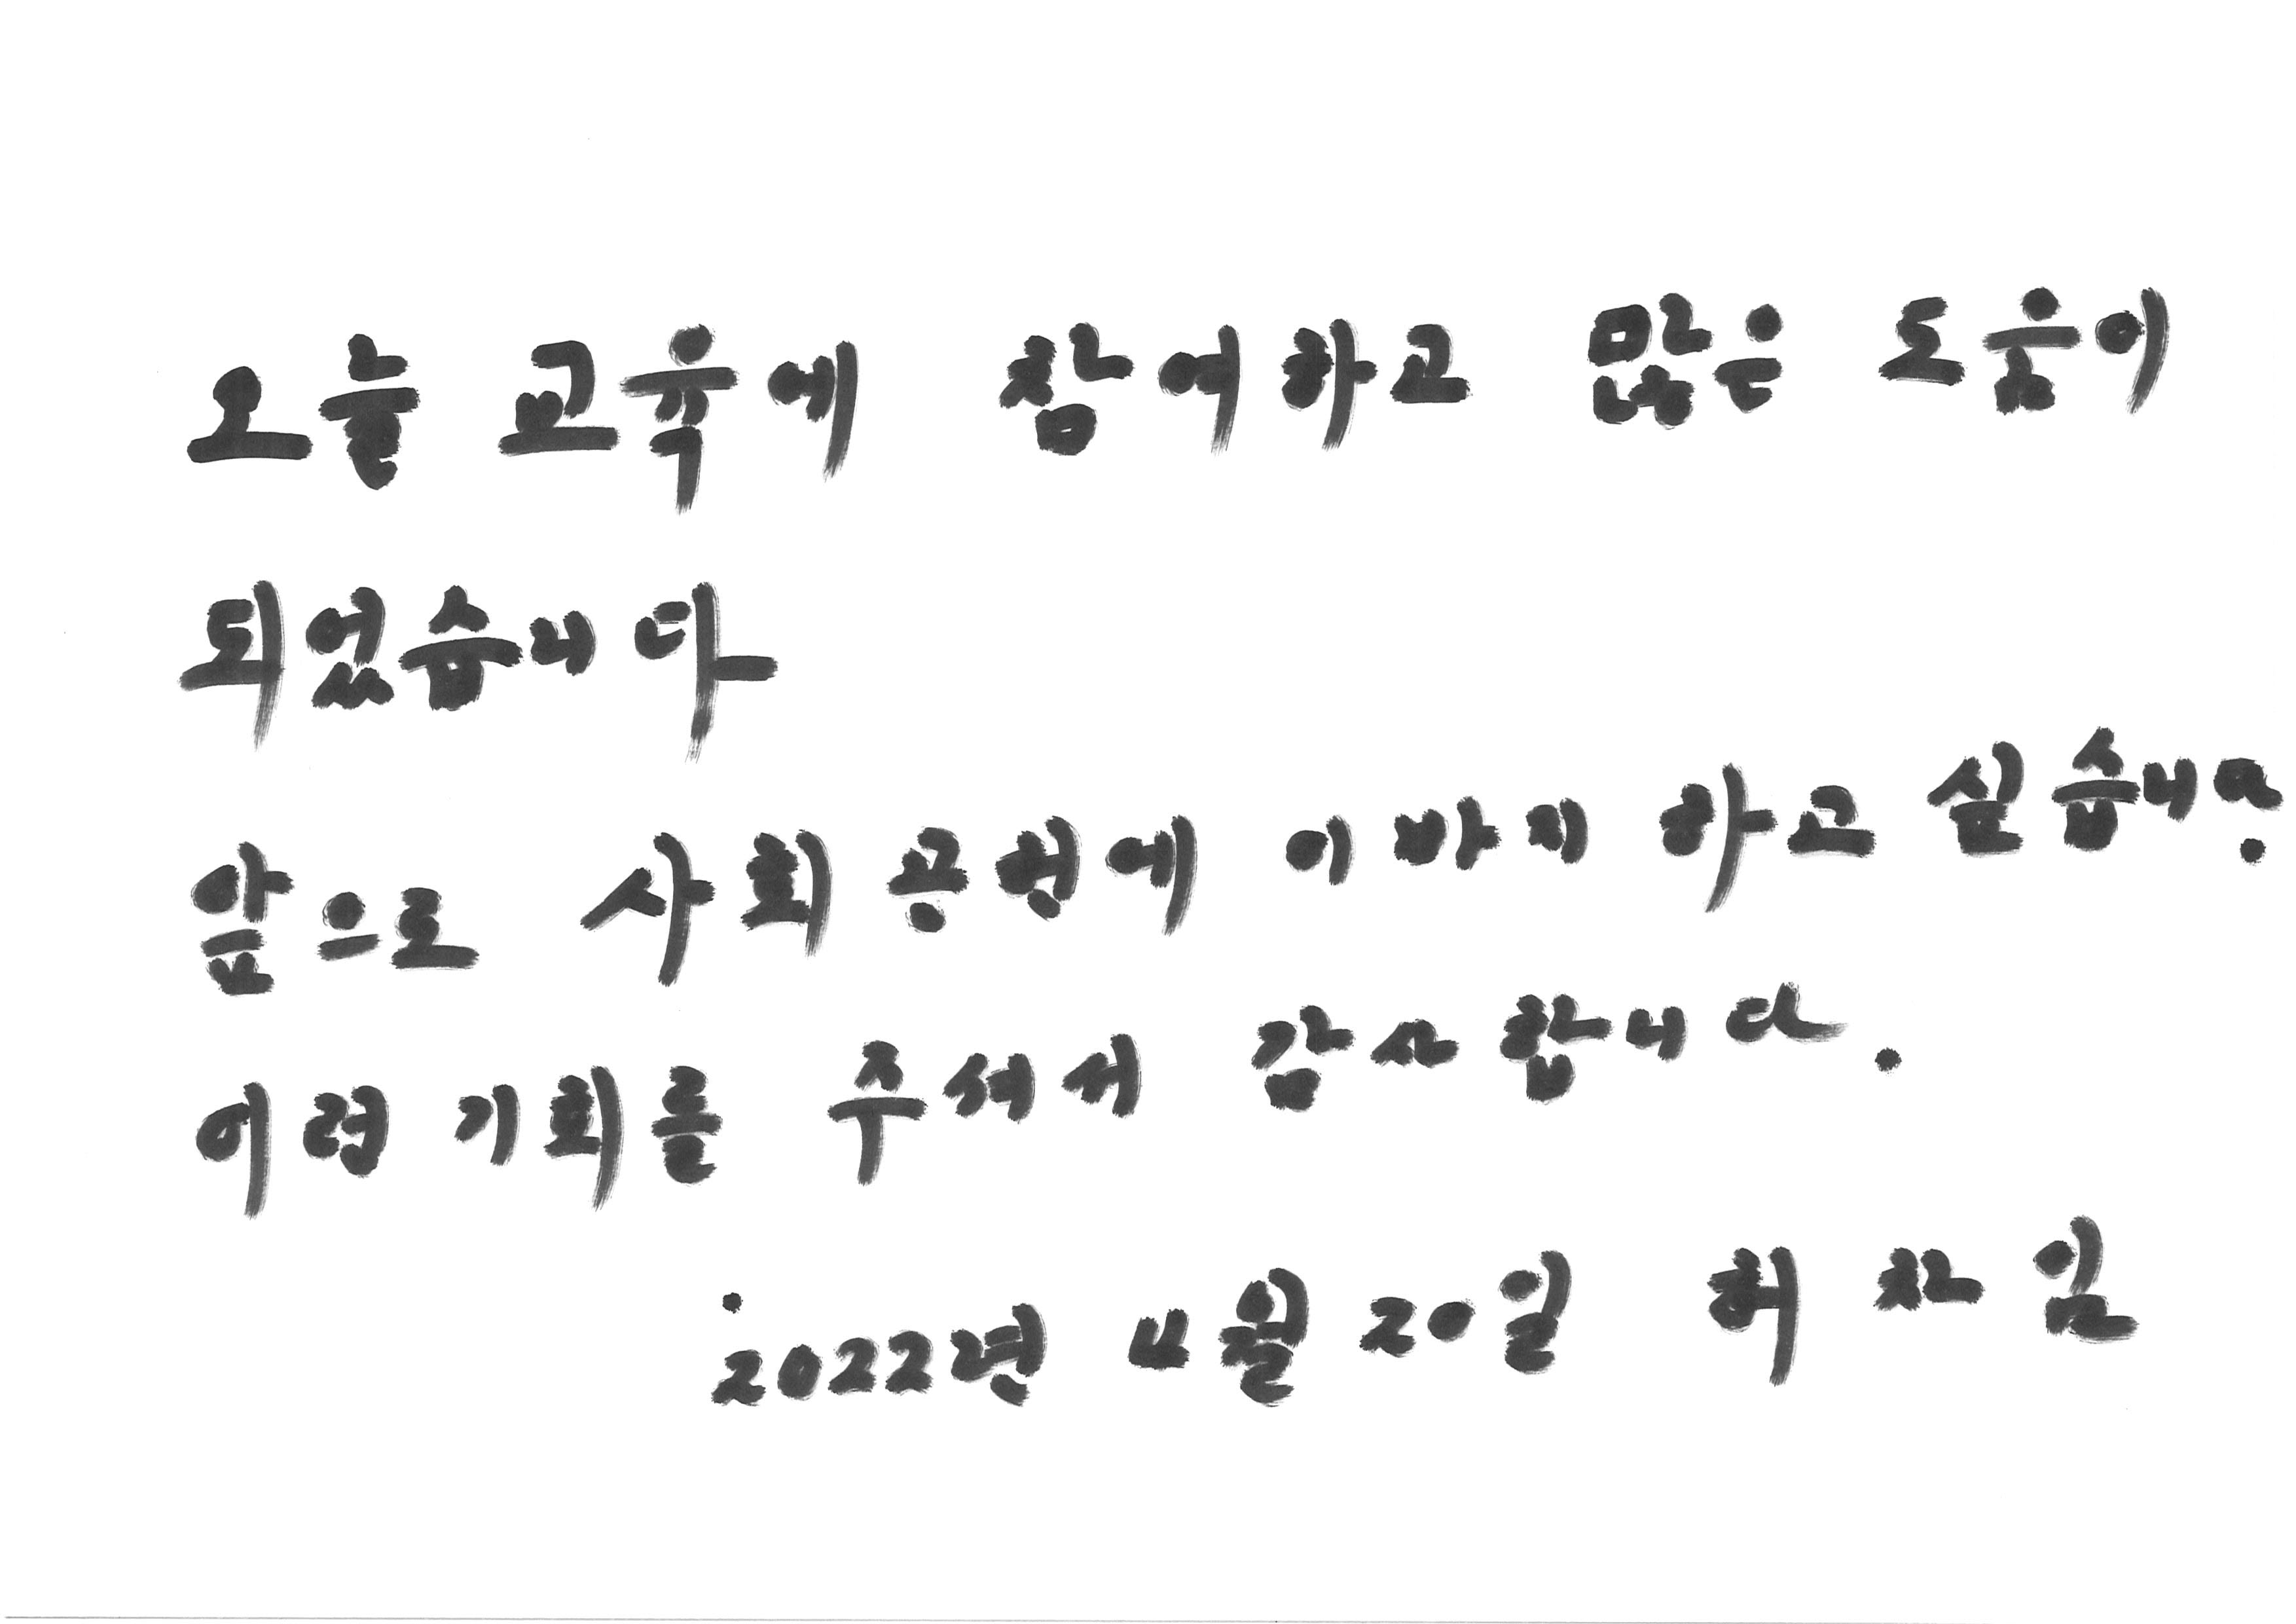 오늘 교육에 참여하고 많은 도움이
되었습니다
앞으로 사회 공헌에 이바지 하고 싶습니다.
이런 기회를 주셔서 감사합니다.
2022년 4월 20일 허 찬 임